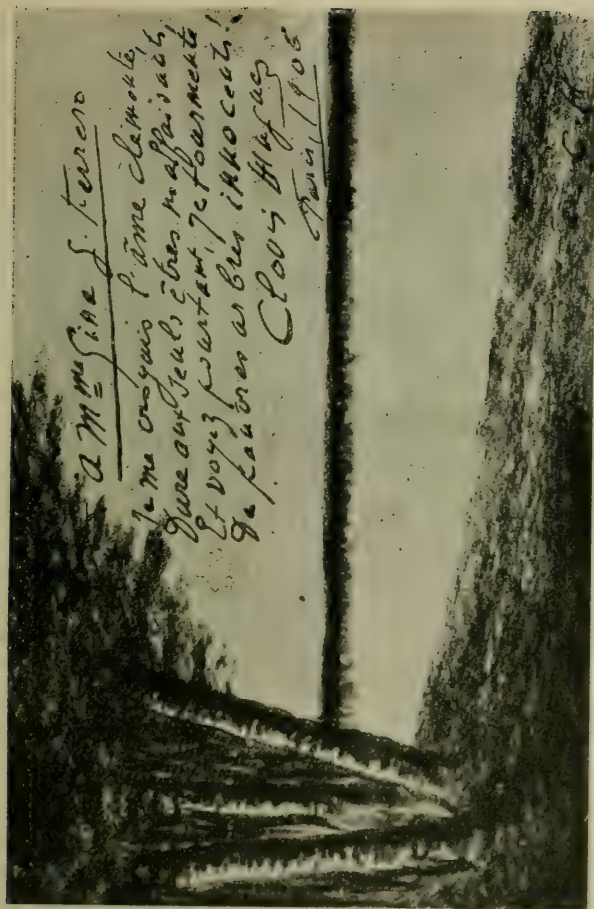 a Mme Gina L. Ferrero
Je me croyais l'âme clémente,
Dure aux seuls êtres malfaisants,
Et voyez pourtant, je tourmente
De pauvres arbres innocents!
Clovis Hugues
Paris, 1905
C.H.